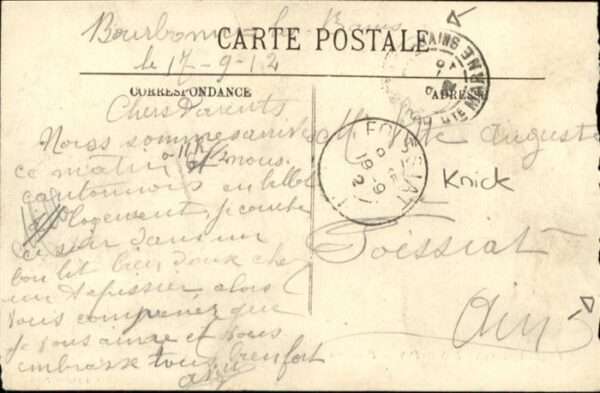 Bourbonne-les-Bains
CARTE POSTALE
le 17-9-12
CORRESPONDANCE
ADRESSE
Chers Parents
Nous sommes arrivés
ce matin à 11h 1/2 nous
cantonnons en billet
de logement, je couche
ce soir dans un
bon lit bien doux chez
un tapissier alors
vous comprenez que
je vous aime et vous
embrasse tous bien fort
M. Auguste
Foissiat
Ain
FOISSIAT
19-9
12
BAINS
HTE MARNE
Knick